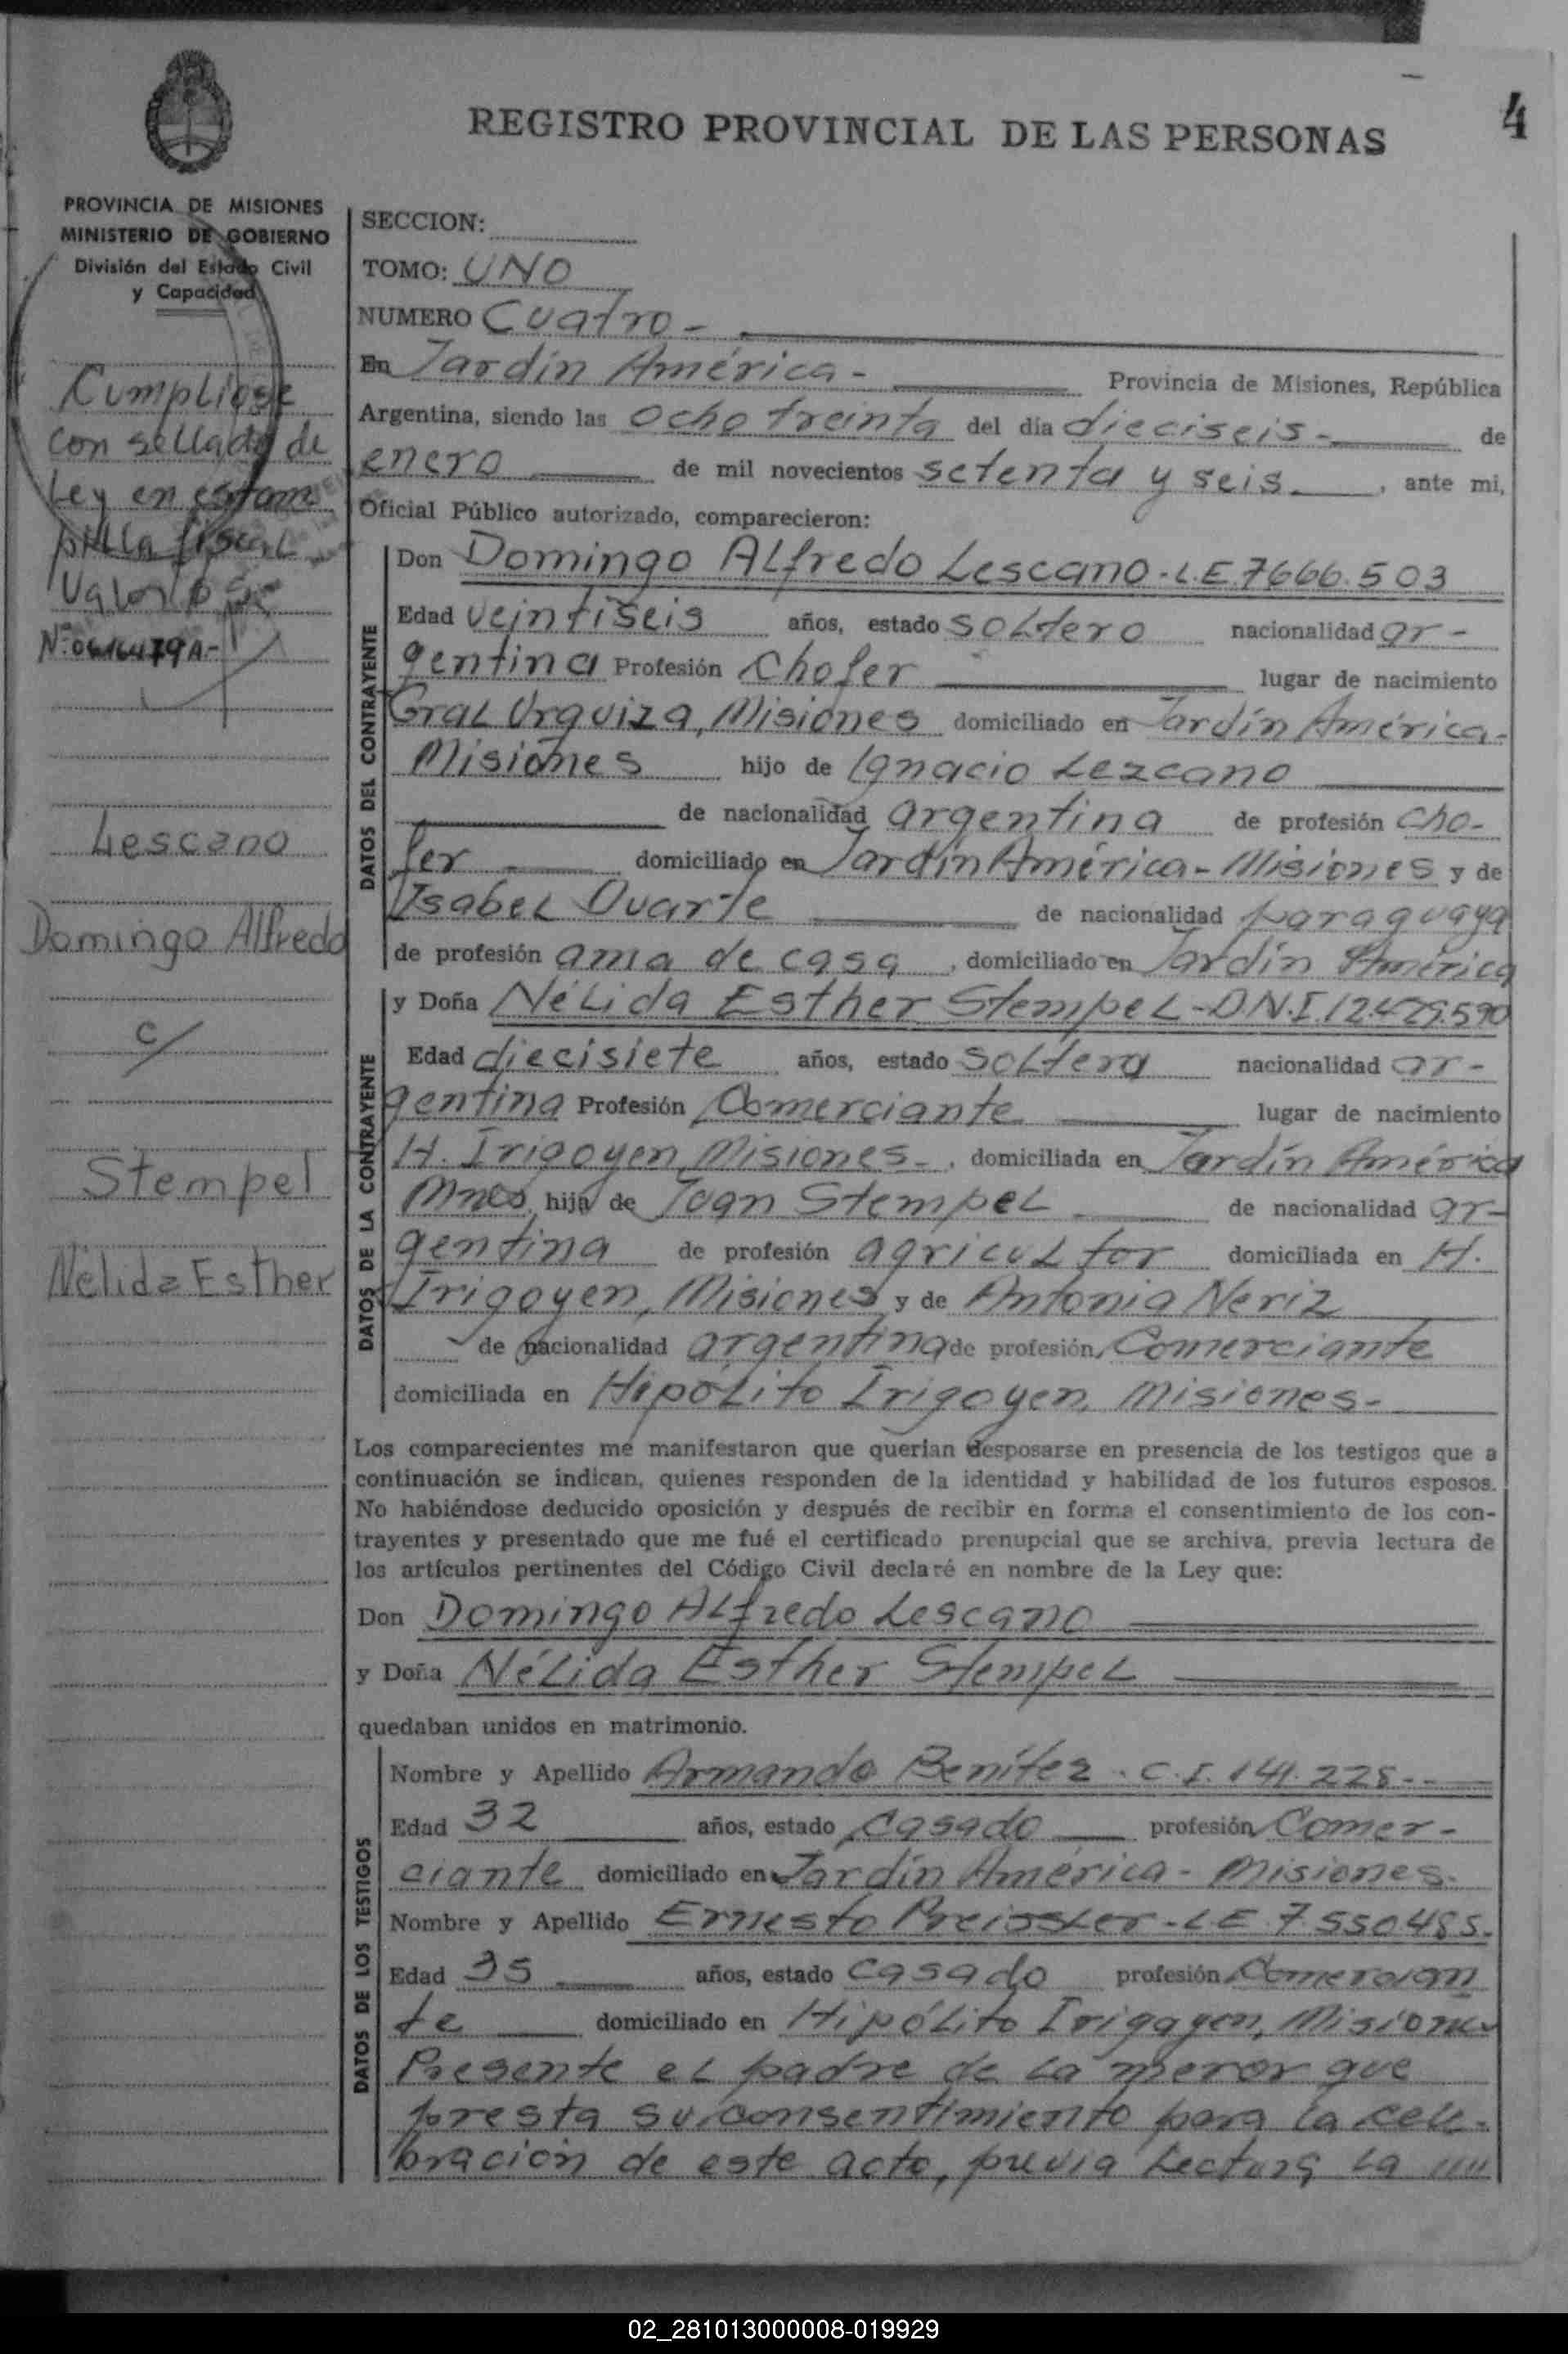 REGISTRO PROVINCIAL DE LAS PERSONAS
4
PROVINCIA DE MISIONES
MINISTERIO DE GOBIERNO
División del Estado Civil
y Capacidad
Cumpliose
con sellado de
Ley en estam
pilla fiscal
Valor $
Nº 0616479A.-
Lescano
Domingo Alfredo
c/
Stempel
Nélida Esther
SECCION:
TOMO: UNO
NUMERO Cuatro -
En Jardín América - Provincia de Misiones, República
Argentina, siendo las ocho treinta del día dieciseis - de
enero de mil novecientos setenta y seis , ante mi,
Oficial Público autorizado, comparecieron:
DATOS DEL CONTRAYENTE
Don Domingo Alfredo Lescano - L.E 7666.503
Edad veintiseis años, estado soltero nacionalidad ar-
gentina Profesión Chofer lugar de nacimiento
Gral Urquiza, Misiones domiciliado en Jardín América -
Misiones hijo de Ignacio Lezcano
de nacionalidad argentina de profesión cho-
fer domiciliado en Jardín América - Misiones y de
Isabel Duarte de nacionalidad paraguaya
de profesión ama de casa , domiciliado en Jardín América
DATOS DE LA CONTRAYENTE
y Doña Nélida Esther Stempel - D.N.I 12.429.590
Edad diecisiete años, estado soltera nacionalidad ar-
gentina Profesión Comerciante lugar de nacimiento
H. Irigoyen, Misiones - , domiciliada en Jardín América
Mnes, hija de Juan Stempel de nacionalidad ar-
gentina de profesión agricultor domiciliada en H.
Irigoyen, Misiones y de Antonia Neriz
de nacionalidad argentina de profesión Comerciante
domiciliada en Hipólito Irigoyen, Misiones -
Los comparecientes me manifestaron que querían desposarse en presencia de los testigos que a
continuación se indican, quienes responden de la identidad y habilidad de los futuros esposos.
No habiéndose deducido oposición y después de recibir en forma el consentimiento de los con-
trayentes y presentado que me fué el certificado prenupcial que se archiva, previa lectura de
los artículos pertinentes del Código Civil declaré en nombre de la Ley que:
Don Domingo Alfredo Lescano
y Doña Nélida Esther Stempel
quedaban unidos en matrimonio.
DATOS DE LOS TESTIGOS
Nombre y Apellido Armando Benítez - C.I. 141.228 -
Edad 32 años, estado casado profesión Comer-
ciante domiciliado en Jardín América - Misiones -
Nombre y Apellido Ernesto Preissler - L.E 7.550485.
Edad 35 años, estado casado profesión Comercian
te domiciliado en Hipólito Irigoyen, Misiones
Presente el padre de la menor que
presta su consentimiento para la cele-
bración de este acto, previa lectura la ////
02_281013000008-019929